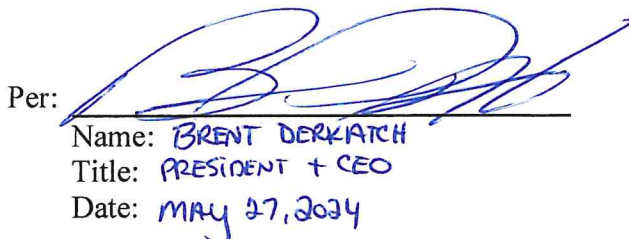 Per:
Name: BRENT DERKATCH
Title: PRESIDENT + CEO
Date: MAY 27, 2024